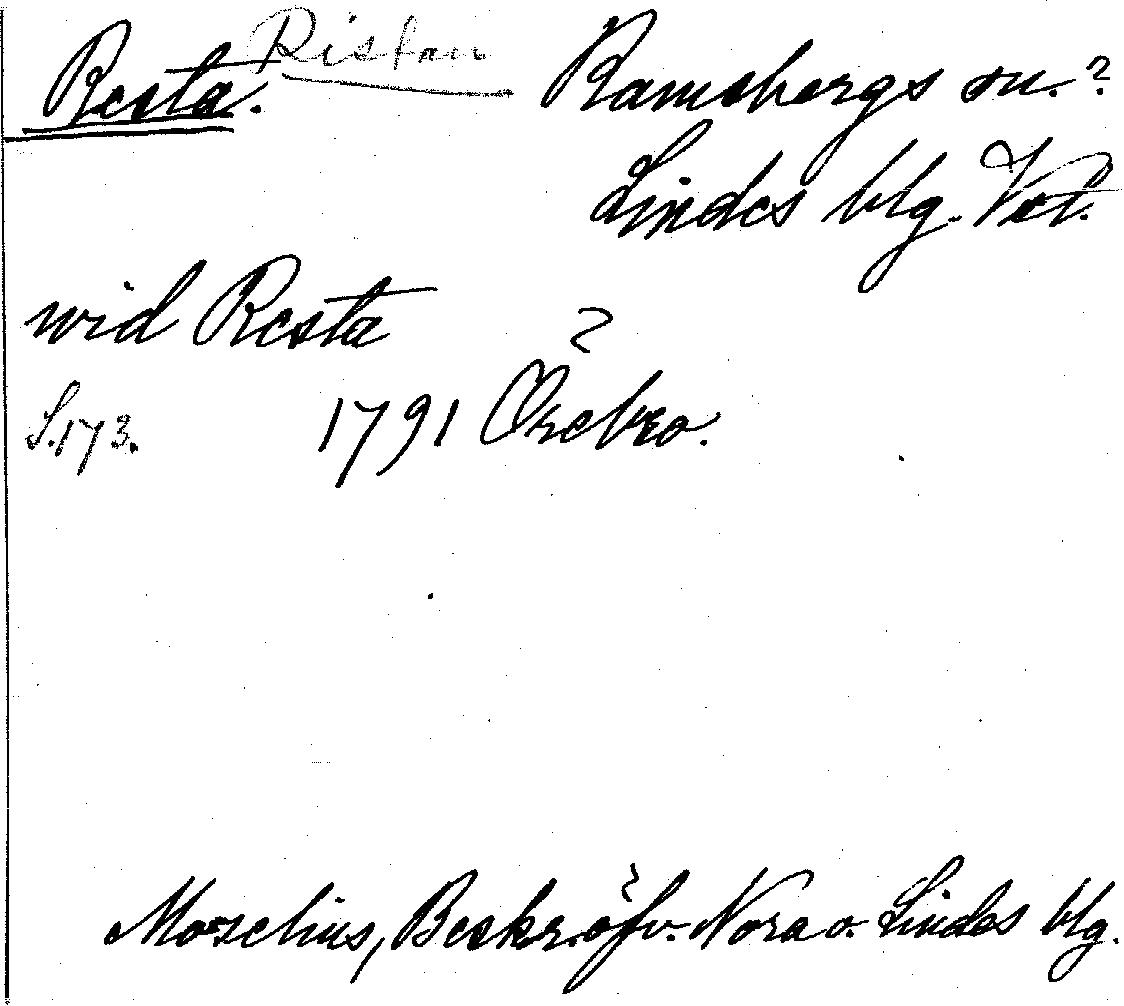 Resta. Ristan Ramsbergs sn.?
Lindes blg. Vstl.
wid Resta
S. 173. 1791 Örebro.
Moselius, Beskr. öfv. Nora o. Lindes blg.